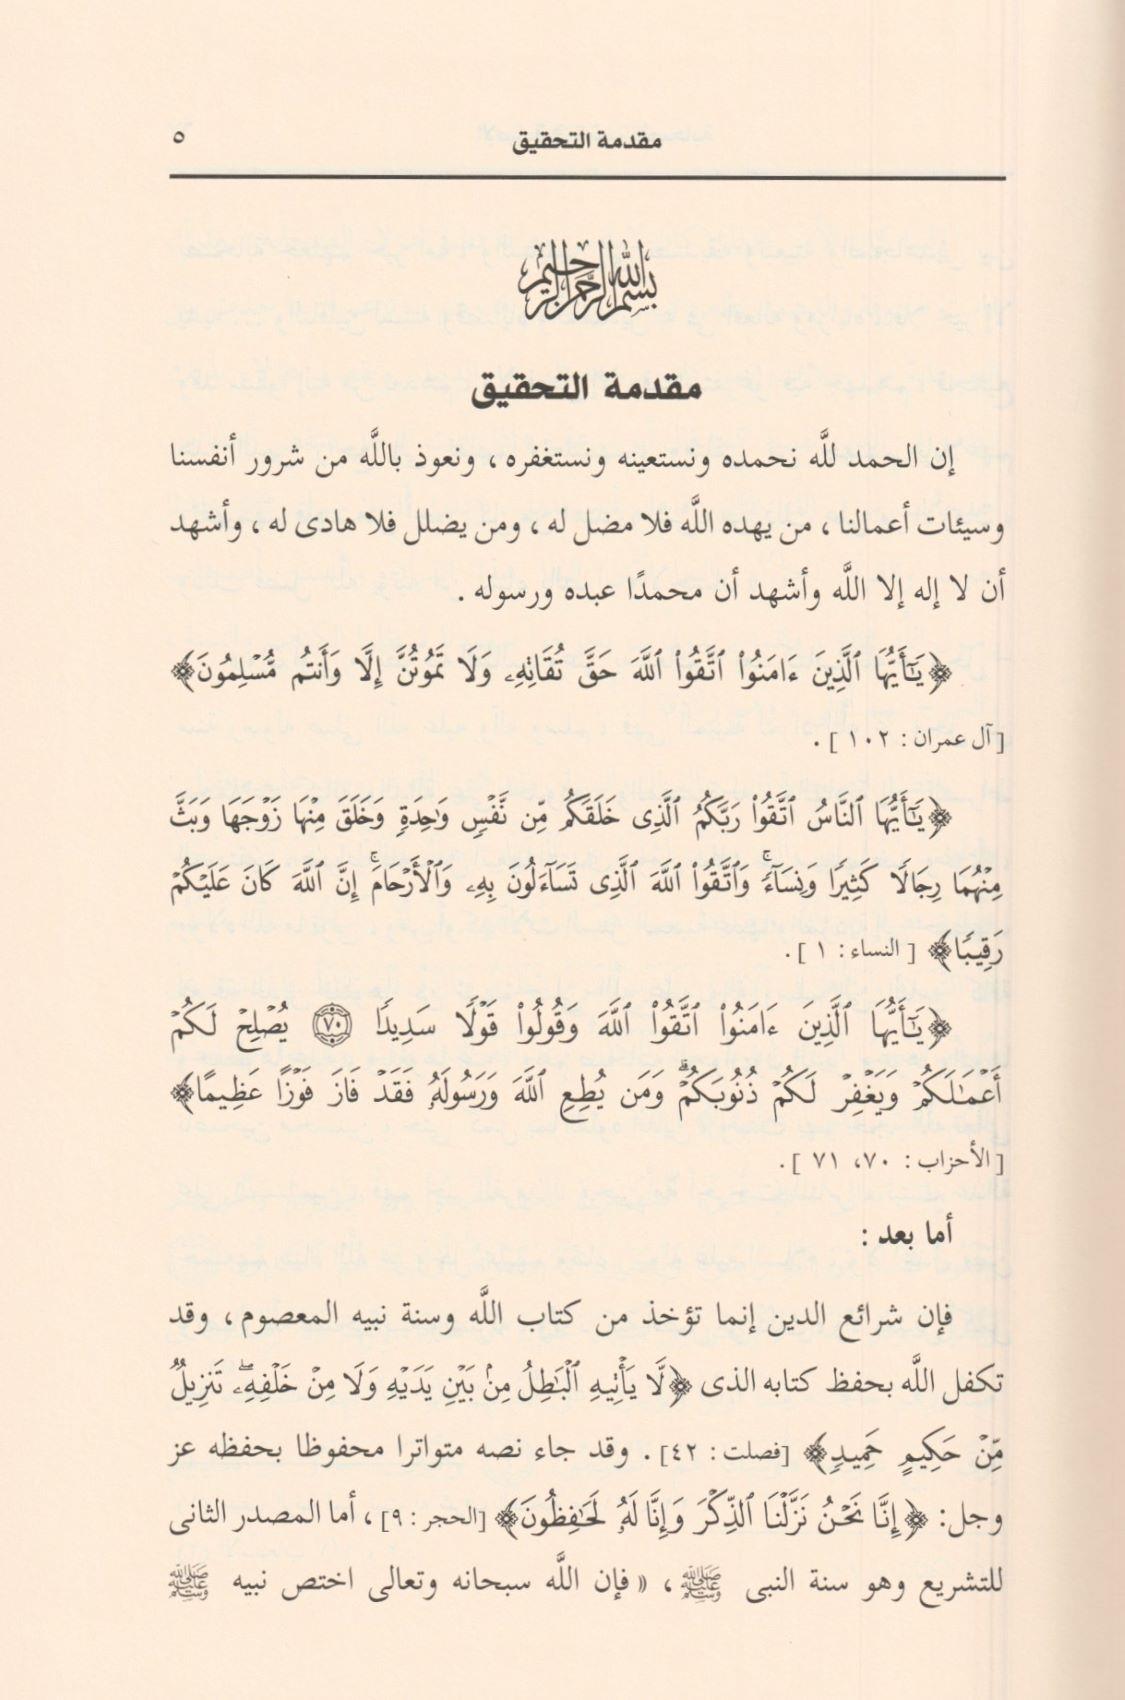 مقدمة التحقيق ٥
بسم الله الرحمن الرحيم
مقدمة التحقيق
إن الحمد للَّه نحمده ونستعينه ونستغفره ، ونعوذ باللَّه من شرور أنفسنا
وسيئات أعمالنا ، من يهده اللَّه فلا مضل له ، ومن يضلل فلا هادى له ، وأشهد
أن لا إله إلا اللَّه وأشهد أن محمدًا عبده ورسوله .
﴿يَٰٓأَيُّهَا ٱلَّذِينَ ءَامَنُوا۟ ٱتَّقُوا۟ ٱللَّهَ حَقَّ تُقَاتِهِۦ وَلَا تَمُوتُنَّ إِلَّا وَأَنتُم مُّسْلِمُونَ﴾
[آل عمران : ١٠٢ ] .
﴿يَٰٓأَيُّهَا ٱلنَّاسُ ٱتَّقُوا۟ رَبَّكُمُ ٱلَّذِى خَلَقَكُم مِّن نَّفْسٍ وَٰحِدَةٍ وَخَلَقَ مِنْهَا زَوْجَهَا وَبَثَّ
مِنْهُمَا رِجَالًا كَثِيرًا وَنِسَآءً ۚ وَٱتَّقُوا۟ ٱللَّهَ ٱلَّذِى تَسَآءَلُونَ بِهِۦ وَٱلْأَرْحَامَ ۚ إِنَّ ٱللَّهَ كَانَ عَلَيْكُمْ
رَقِيبًا﴾ [ النساء : ١ ] .
﴿يَٰٓأَيُّهَا ٱلَّذِينَ ءَامَنُوا۟ ٱتَّقُوا۟ ٱللَّهَ وَقُولُوا۟ قَوْلًا سَدِيدًا ٧٠ يُصْلِحْ لَكُمْ
أَعْمَٰلَكُمْ وَيَغْفِرْ لَكُمْ ذُنُوبَكُمْ ۗ وَمَن يُطِعِ ٱللَّهَ وَرَسُولَهُۥ فَقَدْ فَازَ فَوْزًا عَظِيمًا﴾
[الأحزاب : ٧٠، ٧١ ] .
أما بعد :
فإن شرائع الدين إنما تؤخذ من كتاب اللَّه وسنة نبيه المعصوم ، وقد
تكفل اللَّه بحفظ كتابه الذى ﴿لَّا يَأْتِيهِ ٱلْبَٰطِلُ مِنۢ بَيْنِ يَدَيْهِ وَلَا مِنْ خَلْفِهِۦ ۖ تَنزِيلٌ
مِّنْ حَكِيمٍ حَمِيدٍ﴾ [فصلت : ٤٢] . وقد جاء نصه متواترا محفوظا بحفظه عز
وجل: ﴿إِنَّا نَحْنُ نَزَّلْنَا ٱلذِّكْرَ وَإِنَّا لَهُۥ لَحَٰفِظُونَ﴾ [الحجر : ٩] ، أما المصدر الثانى
للتشريع وهو سنة النبى ﷺ ، « فإن اللَّه سبحانه وتعالى اختص نبيه ﷺ